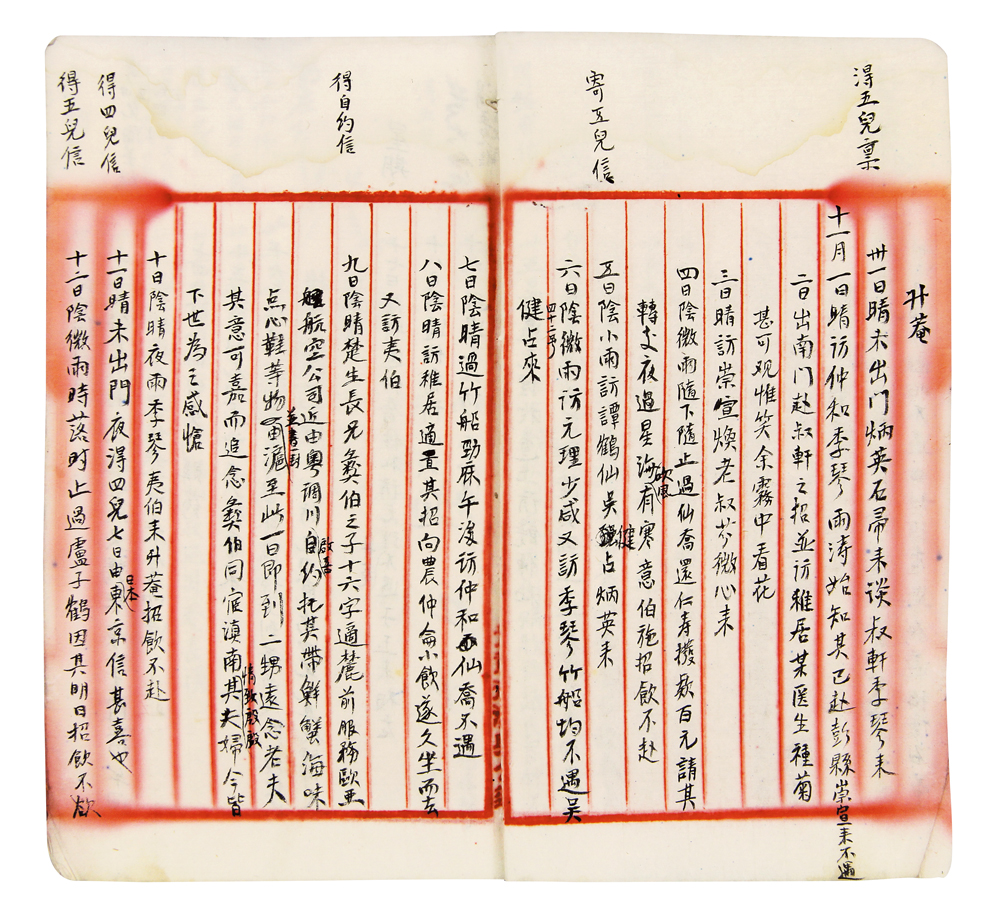 得五兒稟
寄五兒信
升菴
卅一日晴未出门炳英石帚来談叔軒季琴来
十一月一日晴访仲和季琴雨涛始知其已赴彭縣崇宣来不遇
二日出南门赴叔軒之招並访雅居某医生種菊
甚可观惟笑余雾中看花
三日晴訪崇宣煥老叔芥微心来
四日陰微雨随下随止過仙喬還仁寿撥欵百元請其
轉支夜過星海有寒意伯施招飲不赴
欲風
五日陰小雨訪譚鶴仙吴占炳英来
健
六日陰微雨访元理少咸又訪季琴竹船均不遇吴
健占來
得自约信
得四兒信
得五兒信
七日陰晴過竹船勁庥午後访仲和仙喬不遇
八日陰晴訪稚居適其招向農仲侖小飲遂久坐而去
又訪夷伯
九日陰晴楚生長兄彝伯之子十六字適麓前服務歐亚
航空公司近由粤调川自约托其帶鮮蟹海味
啟居
点心鞋等物由滬至此一日即到二甥遠念老夫
其意可嘉而追念彝伯同宦滇南其夫婦今皆
情致殷殷
下世為之感愴
十日陰晴夜雨季琴夷伯来升菴招飲不赴
十一日晴未出門夜得四兒七日由東京信甚喜也
日本
十二日陰微雨時落時止過盧子鶴因其明日招飲不欲